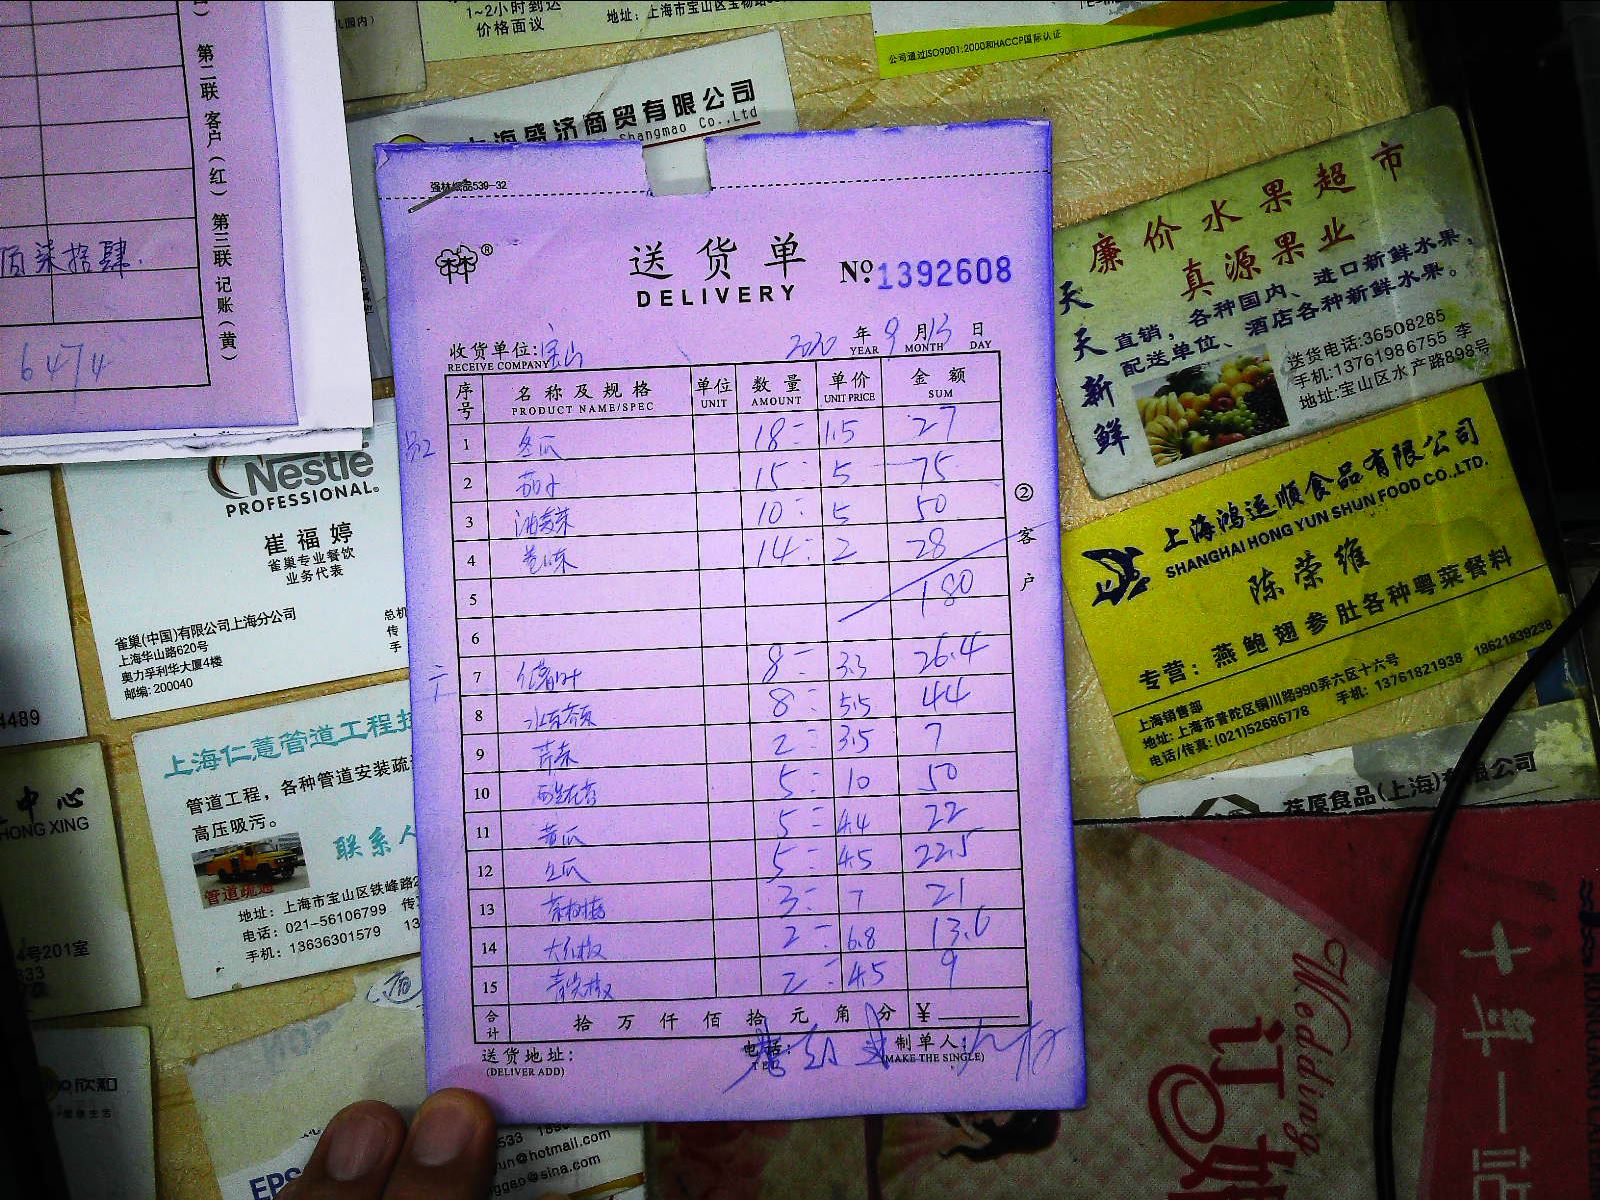 第二联 客户(红) 第三联 记账(黄)
佰柒拾肆
6474
1~2小时到达
价格面议
公司通过ISO9001:2000和HACCP国际认证
上海盛济商贸有限公司
Shangmao Co.,Ltd
强林纸品539-32
送货单
DELIVERY
№ 1392608
收货单位:宝山 2020 年 9 月 13 日
RECEIVE COMPANY YEAR MONTH DAY
序号 名称及规格 单位 数量 单价 金额
PRODUCT NAME/SPEC UNIT AMOUNT UNIT PRICE SUM
1 冬瓜 18 1.5 27
2 茄子 15 5 75
3 油麦菜 10 5 50
4 14 2 28
5 180
6
7 8 3.3 26.4
8 8 5.5 44
9 芹菜 2 3.5 7
10 西兰花 5 10 50
11 黄瓜 5 4.4 22
12 5 4.5 22.5
13 茶树菇 3 7 21
14 大红椒 2 6.8 13.6
15 青尖椒 2 4.5 9
合计 拾 万 仟 佰 拾 元 角 分 ¥
送货地址: 电话: 制单人:
(DELIVER ADD) TEL (MAKE THE SINGLE)
② 客户
Nestle
PROFESSIONAL
崔福婷
雀巢专业餐饮
业务代表
雀巢(中国)有限公司上海分公司
上海华山路620号
奥力孚利华大厦4楼
邮编: 200040
总机
传
手
4489
上海仁薏管道工程
管道工程，各种管道安装疏
高压吸污。
联系人
管道疏通
地址：上海市宝山区铁峰路2
电话：021-56106799 传
手机：13636301579 13
中心
HONG XING
4号201室
333
欣和
EPS
un@hotmail.com
@sina.com
廉价水果超市
真源果业
天天新鲜
直销，各种国内、进口新鲜水果，
配送单位、酒店各种新鲜水果。
送货电话:36508285
手机:13761986755 李
地址:宝山区水产路898号
上海鸿运顺食品有限公司
SHANGHAI HONG YUN SHUN FOOD CO.,LTD.
陈荣维
专营：燕鲍翅参肚各种粤菜餐料
上海销售部
地址: 上海市普陀区铜川路990弄六区十六号
电话/传真: (021)52686778 手机: 13761821938 18621839238
荏原食品(上海)有限公司
十年一站
Wedding
订